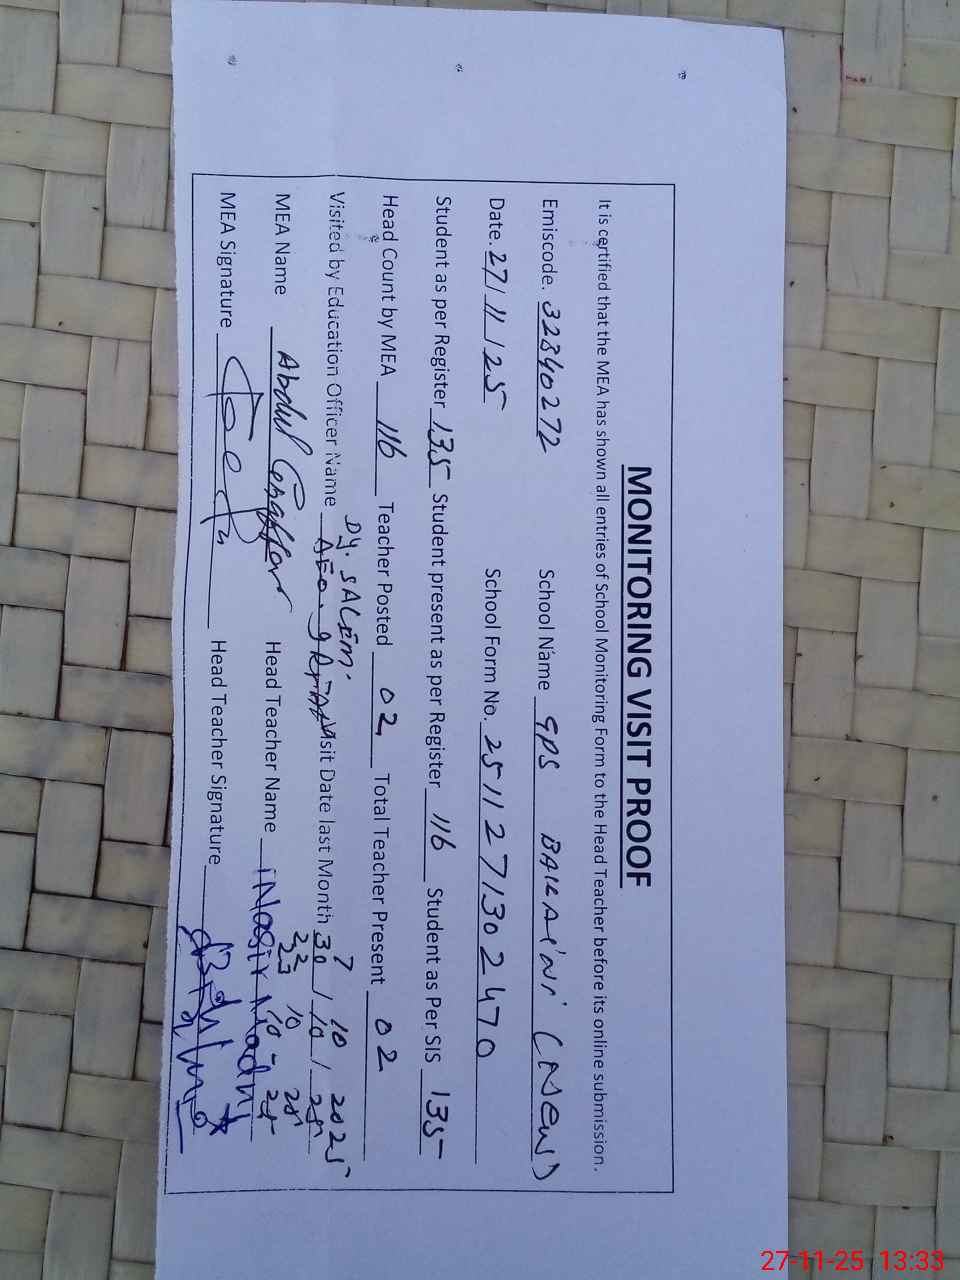 MONITORING VISIT PROOF
It is certified that the MEA has shown all entries of School Monitoring Form to the Head Teacher before its online submission.
Emiscode. 32340272 School Name GPS BAKAINI (New)
Date. 27/11/25 School Form No. 251127130 2470
Student as per Register 135 Student present as per Register 116 Student as Per SIS 135
Head Count by MEA 116 Teacher Posted 02 Total Teacher Present 02
Dy. SALEM. 7 10 2025
Visited by Education Officer Name AEO. Visit Date last Month 30/10/25
22 10 25
23 10 - 25
MEA Name Abdul Ghaffar Head Teacher Name Nasir
MEA Signature Head Teacher Signature
27-11-25 13:33